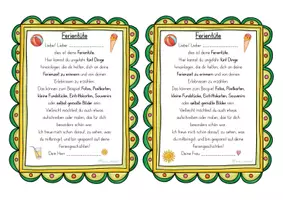 Ferientüte
Liebe/ Lieber
dies ist deine Ferientüte.
Hier kannst du ungefähr fünf Dinge
hineinpacken, die dir helfen, dich an deine
Ferienzeit zu erinnern und von deinen
Erlebnissen zu erzählen.
Das können zum Beispiel Fotos, Postkarten,
kleine Fundstücke, Eintrittskarten, Souvenirs
oder selbst gemalte Bilder sein.
Vielleicht möchtest du auch etwas
aufschreiben oder malen, das für dich
besonders schön war.
Ich freue mich schon darauf, zu sehen, was
du mitbringst und bin gespannt auf deine
Feriengeschichten!
Dein Herr
Ferientüte
Liebe/ Lieber
dies ist deine Ferientüte.
Hier kannst du ungefähr fünf Dinge
hineinpacken, die dir helfen, dich an deine
Ferienzeit zu erinnern und von deinen
Erlebnissen zu erzählen.
Das können zum Beispiel Fotos, Postkarten,
kleine Fundstücke, Eintrittskarten, Souvenirs
oder selbst gemalte Bilder sein.
Vielleicht möchtest du auch etwas
aufschreiben oder malen, das für dich
besonders schön war.
Ich freue mich schon darauf, zu sehen, was
du mitbringst und bin gespannt auf deine
Feriengeschichten!
Deine Frau